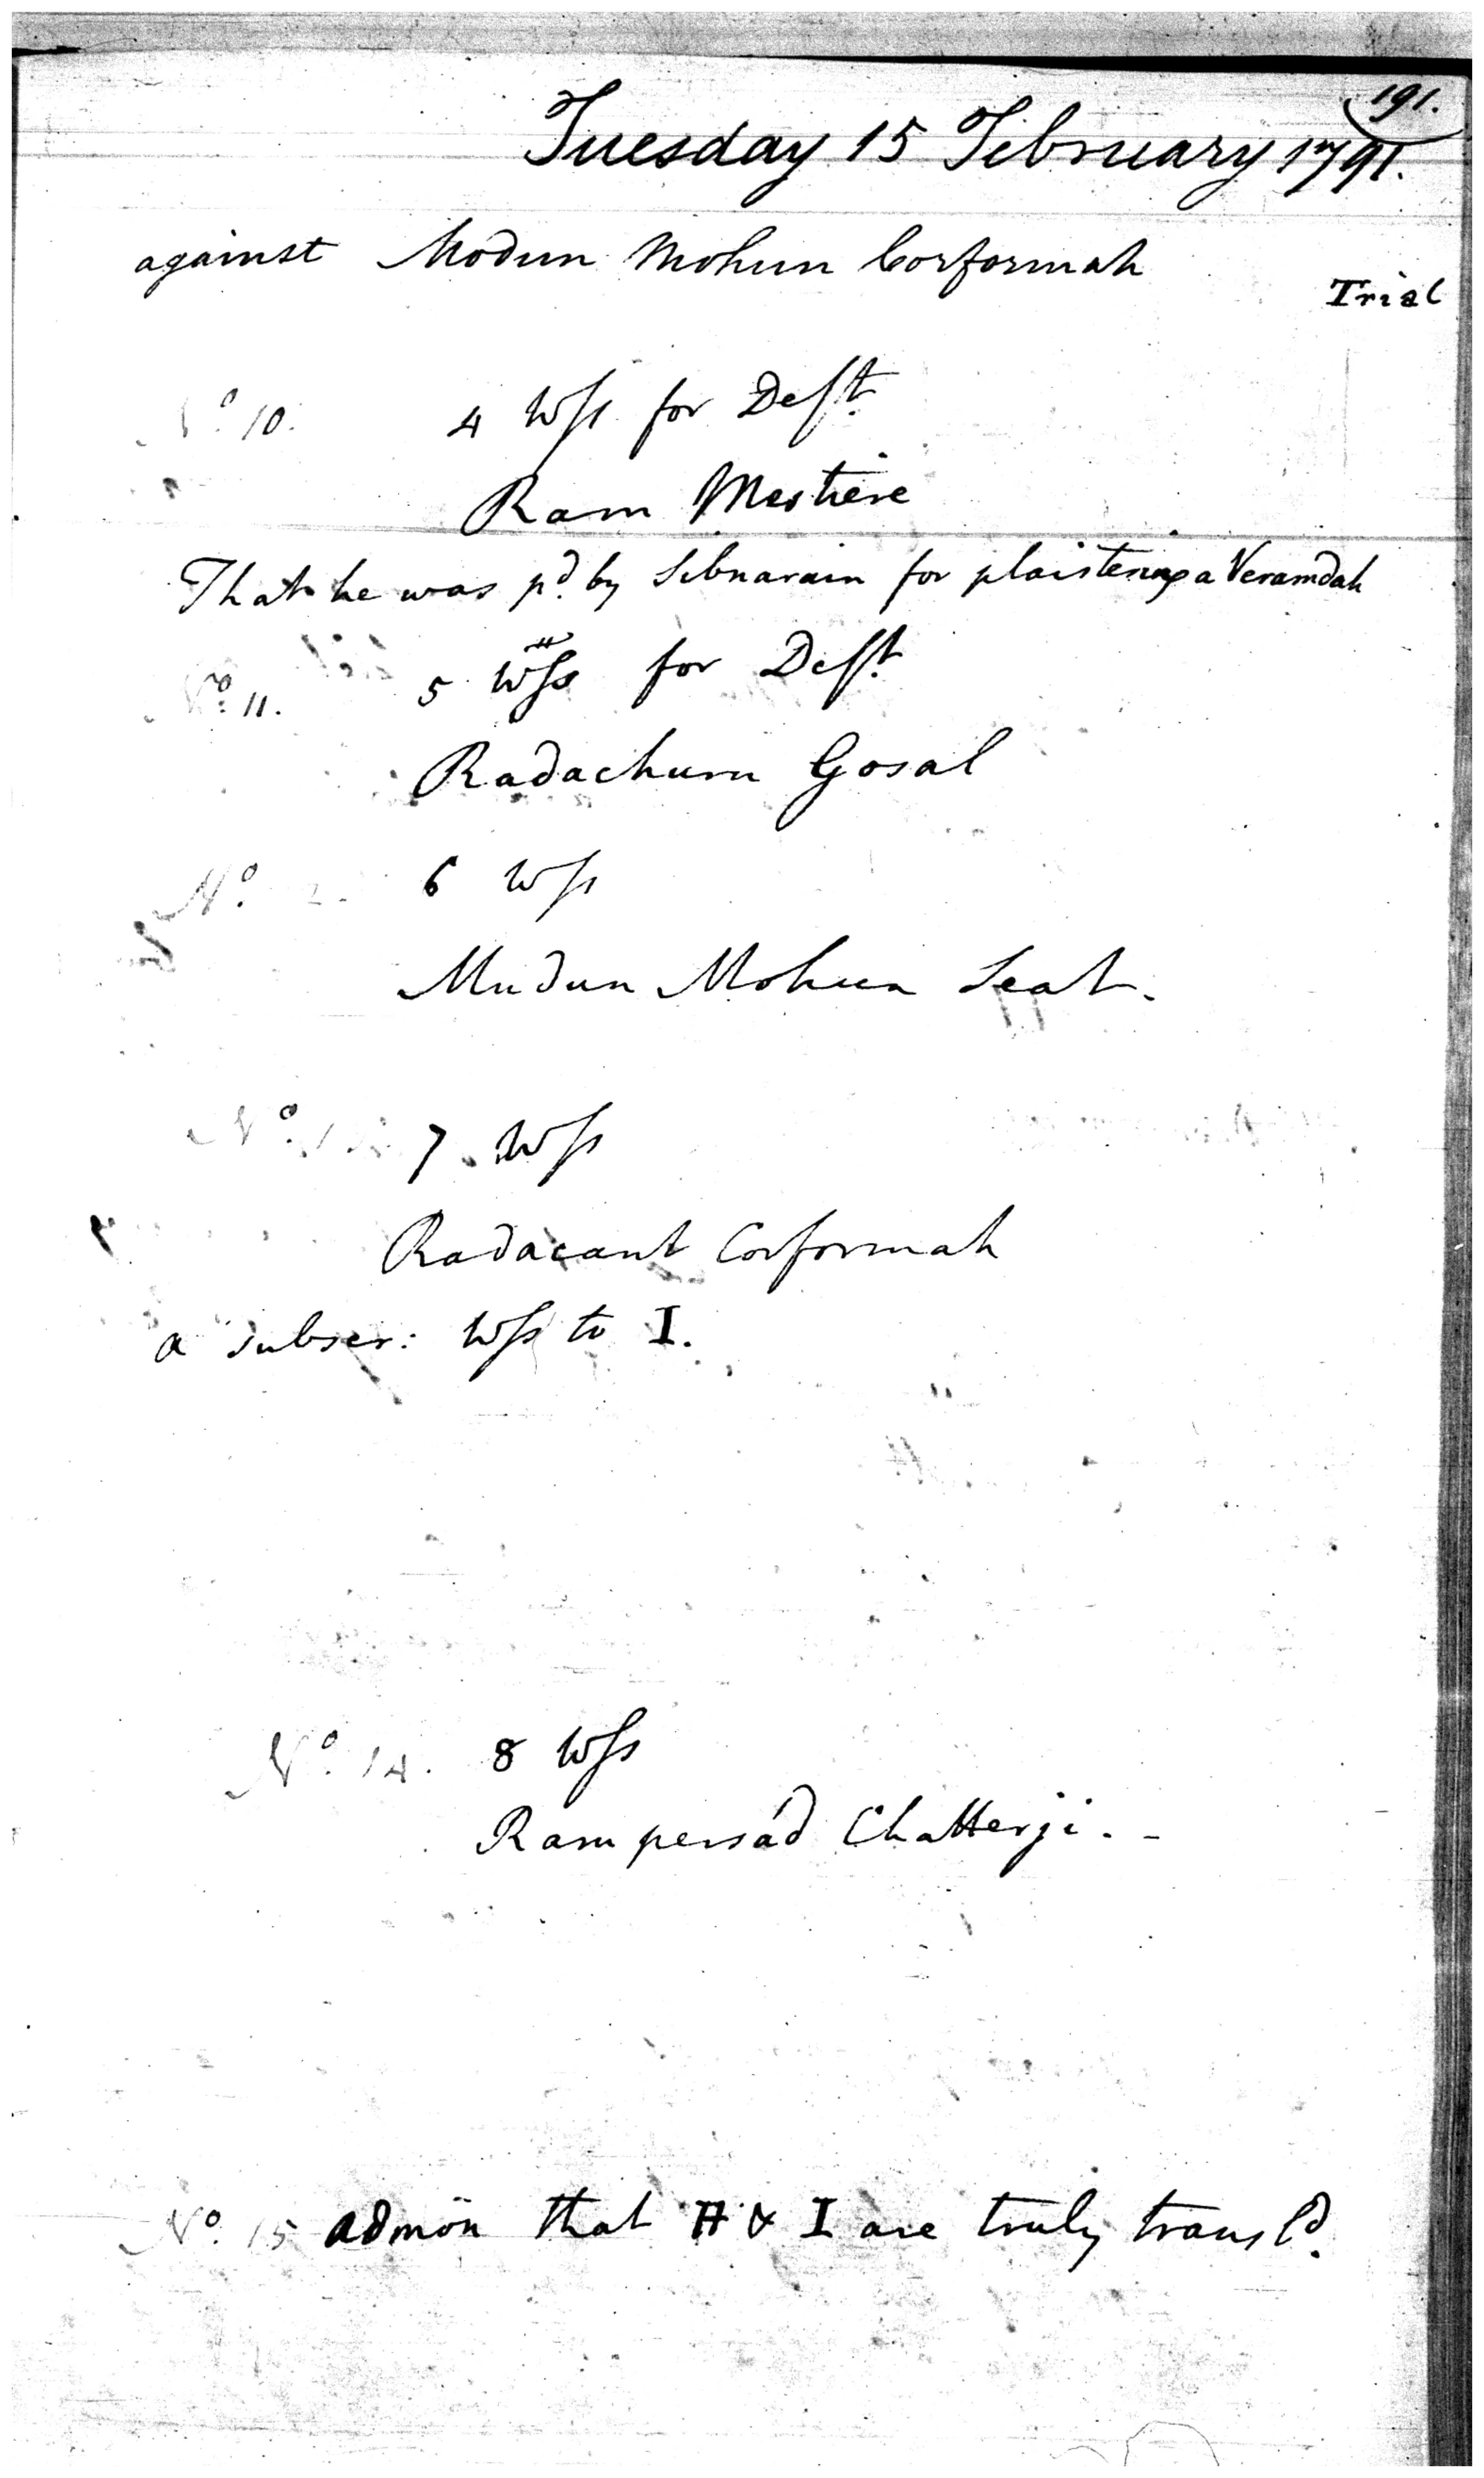 191.
Tuesday 15 February 1791.
against Modun Mohun Corformah
Trial
No. 10. 4 Wss for Deft.
Ram Mestrere
That he was pd. by Sibnarain for plaistering a Verandah
No. 11. 5 Wss for Deft.
Radachurn Gosal
No. 6 Wss
Mudun Mohun Seat.
No. 7 Wss
Radacant Corformah
a subscr: Wss to I.
No. 14. 8 Wss
Rampersád Chatterji. -
No. 15 admōn that H & I are truly transld.